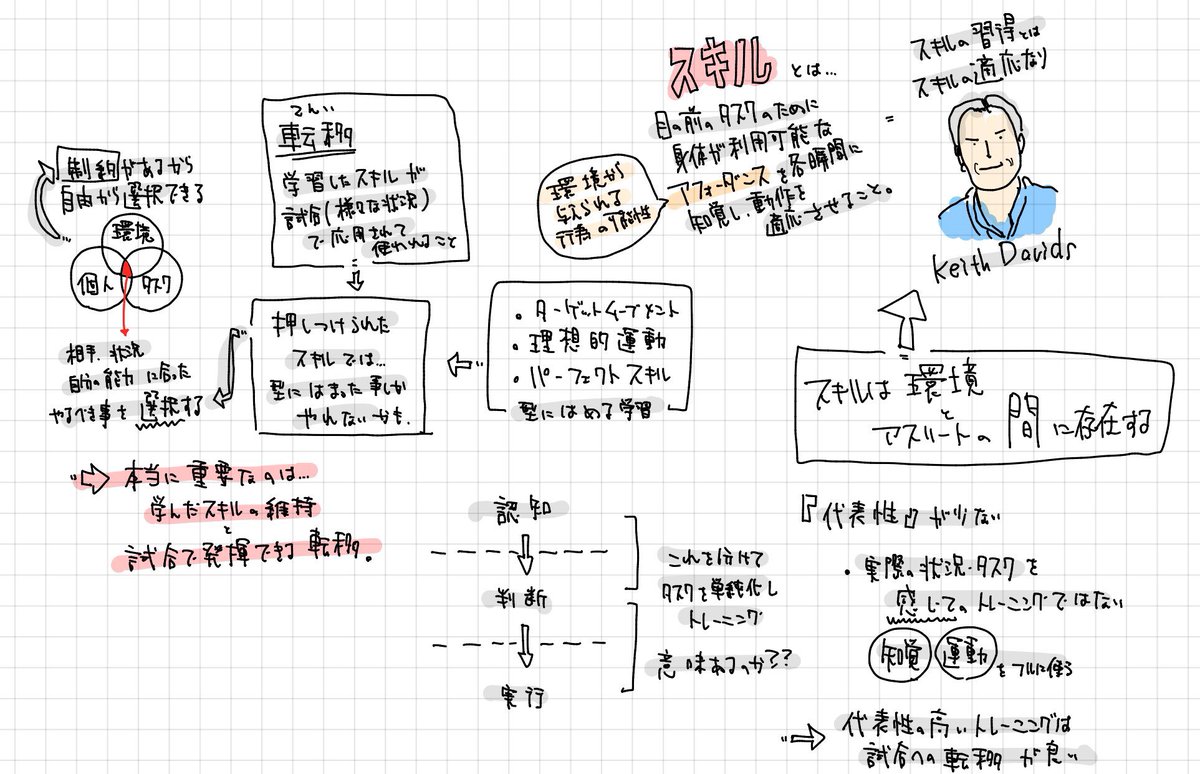 スキルとは…
目の前のタスクのために
身体が利用可能な
アフォーダンスを各瞬間に
知覚し、動作を
適応させること。
環境から
与えられる
行為の可能性
=
スキルの習得とは
スキルの適応なり
Keith Davids
スキルは環境
と
アスリートの間に存在する
てんい
転移
学習したスキルが
試合(様々な状況)
で応用されて
使われること
制約があるから
自由から選択できる
環境
個人
タスク
相手、状況
自分の能力に合った
やるべき事を選択する
押しつけられた
スキルでは…
型にはまった事しか
やれないかも.
・ターゲットムーブメント
・理想的運動
・パーフェクトスキル
型にはめる学習
本当に重要なのは…
学んだスキルの維持
と
試合で発揮できる転移。
認知
判断
実行
これを分けて
タスクを単純化し
トレーニング
意味あるのか??
『代表性』が少ない
・実際の状況・タスクを
感じてのトレーニングではない
知覚 運動 をフルに使う
代表性の高いトレーニングは
試合への転移が良い